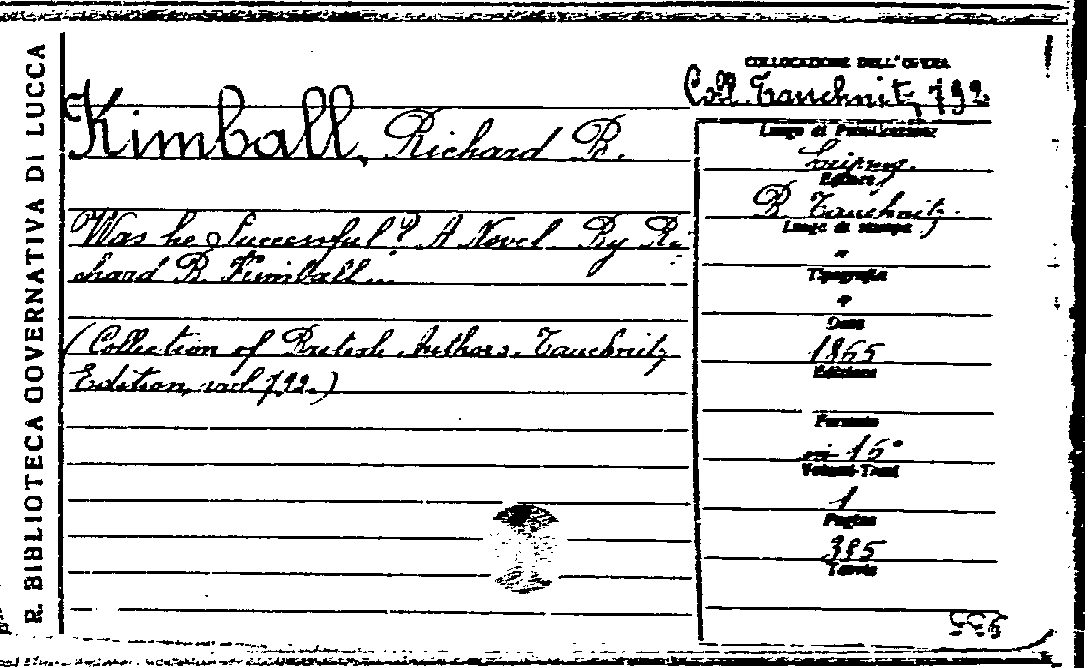 R. BIBLIOTECA GOVERNATIVA DI LUCCA
COLLOCAZIONE DELL'OPERA
Coll. Tauchnitz, 792
Kimball, Richard B.
Was he Successful? A Novel. By Ri-
chard B. Kimball...
(Collection of British Authors. Tauchnitz
Edition, vol. 792.)
Luogo di Pubblicazione
Leipzig.
Editore
B. Tauchnitz.
Luogo di stampa
"
Tipografia
"
Data
1865
Edizione
Formato
in 16°
Volumi-Tomi
1
Pagine
385
Tavole